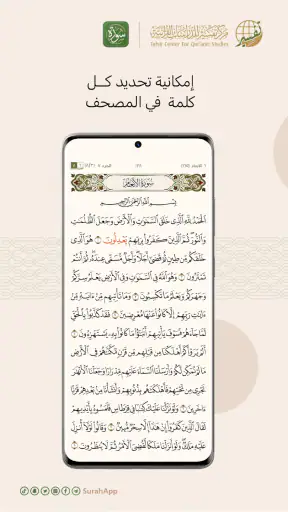 سورة
تفسير
مركز تفسير للدراسات القرآنية
Tafsir Center for Qur'anic Studies
إمكانية تحديد كــل
كلمة في المصحف
١٢٨
سُورَةُ الأَنْعَامِ
بِسْمِ ٱللَّهِ ٱلرَّحْمَٰنِ ٱلرَّحِيمِ
ٱلْحَمْدُ لِلَّهِ ٱلَّذِي خَلَقَ ٱلسَّمَٰوَٰتِ وَٱلْأَرْضَ وَجَعَلَ ٱلظُّلُمَٰتِ
وَٱلنُّورَۖ ثُمَّ ٱلَّذِينَ كَفَرُوا۟ بِرَبِّهِمْ يَعْدِلُونَ ١ هُوَ ٱلَّذِي
خَلَقَكُم مِّن طِينٍ ثُمَّ قَضَىٰٓ أَجَلًاۖ وَأَجَلٌ مُّسَمًّى عِندَهُۥۖ ثُمَّ أَنتُمْ
تَمْتَرُونَ ٢ وَهُوَ ٱللَّهُ فِي ٱلسَّمَٰوَٰتِ وَفِي ٱلْأَرْضِ يَعْلَمُ سِرَّكُمْ
وَجَهْرَكُمْ وَيَعْلَمُ مَا تَكْسِبُونَ ٣ وَمَا تَأْتِيهِم مِّنْ ءَايَةٍ مِّنْ
ءَايَٰتِ رَبِّهِمْ إِلَّا كَانُوا۟ عَنْهَا مُعْرِضِينَ ٤ فَقَدْ كَذَّبُوا۟ بِٱلْحَقِّ
لَمَّا جَآءَهُمْ فَسَوْفَ يَأْتِيهِمْ أَنۢبَٰٓؤُا۟ مَا كَانُوا۟ بِهِۦ يَسْتَهْزِءُونَ ٥
أَلَمْ يَرَوْا۟ كَمْ أَهْلَكْنَا مِن قَبْلِهِم مِّن قَرْنٍ مَّكَّنَّٰهُمْ فِي ٱلْأَرْضِ
مَا لَمْ نُمَكِّن لَّكُمْ وَأَرْسَلْنَا ٱلسَّمَآءَ عَلَيْهِم مِّدْرَارًا وَجَعَلْنَا ٱلْأَنْهَٰرَ
تَجْرِي مِن تَحْتِهِمْ فَأَهْلَكْنَٰهُم بِذُنُوبِهِمْ وَأَنشَأْنَا مِنۢ بَعْدِهِمْ قَرْنًا
ءَاخَرِينَ ٦ وَلَوْ نَزَّلْنَا عَلَيْكَ كِتَٰبًا فِي قِرْطَاسٍ فَلَمَسُوهُ بِأَيْدِيهِمْ
لَقَالَ ٱلَّذِينَ كَفَرُوٓا۟ إِنْ هَٰذَآ إِلَّا سِحْرٌ مُّبِينٌ ٧ وَقَالُوا۟ لَوْلَآ أُنزِلَ
عَلَيْهِ مَلَكٌۖ وَلَوْ أَنزَلْنَا مَلَكًا لَّقُضِيَ ٱلْأَمْرُ ثُمَّ لَا يُنظَرُونَ ٨
SurahApp